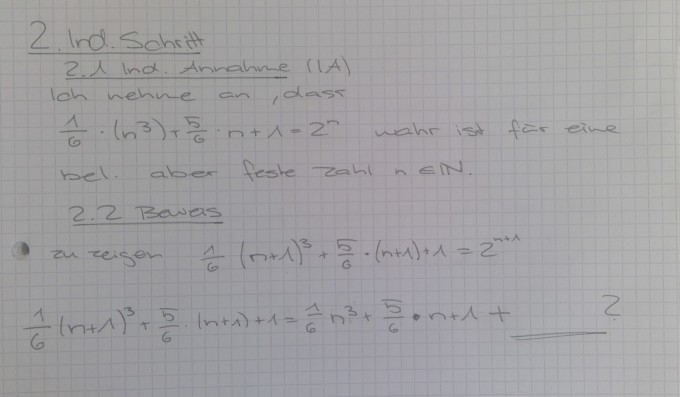 2. Ind. Schritt
2.1 Ind. Annahme (IA)
Ich nehme an, dass
1/6 · (n³) + 5/6 · n + 1 = 2ⁿ wahr ist für eine
bel. aber feste Zahl n ∈ ℕ.
2.2 Beweis
zu zeigen 1/6 (n+1)³ + 5/6 · (n+1) + 1 = 2ⁿ⁺¹
1/6 (n+1)³ + 5/6 · (n+1) + 1 = 1/6 n³ + 5/6 · n + 1 + ______ ?